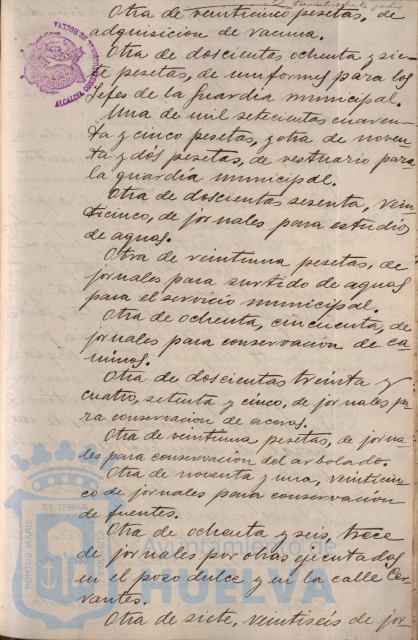 Otra de veinticinco pesetas, de
adquisicion de vacuna.
Otra de doscientas ochenta y sie-
te pesetas, de uniformes para los
Jefes de la Guardia municipal.
Una de mil setecientas cuaren-
ta y cinco pesetas, y otra de noven-
ta y dós pesetas, de vestuario para
la guardia municipal.
Otra de doscientas sesenta, vein
ticinco, de jornales para estudios
de aguas.
Otra de veintiuna pesetas, de
jornales para surtido de aguas
para el servicio municipal.
Otra de ochenta, cincuenta, de
jornales para conservación de ca-
minos.
Otra de doscientas treinta y
cuatro, setenta y cinco, de jornales pa-
ra conservacion de aceras.
Otra de veintiuna pesetas, de jorna-
les para conservación del arbolado.
Otra de noventa y una, veinticin-
co de jornales para conservación
de fuentes.
Otra de ochenta y seis, trece
de jornales por otras ejecutadas
en el pozo dulce y en la calle Cer-
vantes.
Otra de siete, veintiseis de jor-
ALCALDIA CONSTITUCIONAL DE HUELVA
PORTUS MARIS ET TERRAE CUSTODIO
Ayuntamiento de
HUELVA